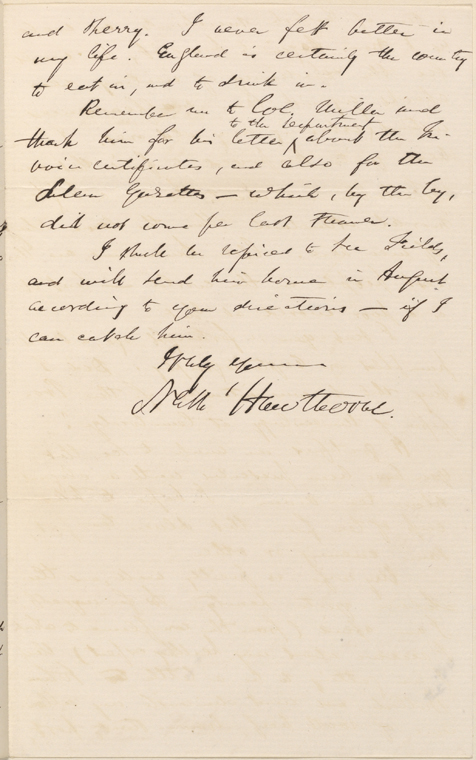 and sherry. I never felt better in
my life. England is certainly the country
to eat in, and to drink in.
Remember me to Col. Miller and
to the Department
thank him for his letter ^ about the In-
voice certificates, and also for the
Salem Gazettes — which, by the by,
did not come per last steamer.
I shall be rejoiced to see Fields,
and will send him home in August
according to your directions — if I
can catch him.
Truly Yours
Nath Hawthorne.